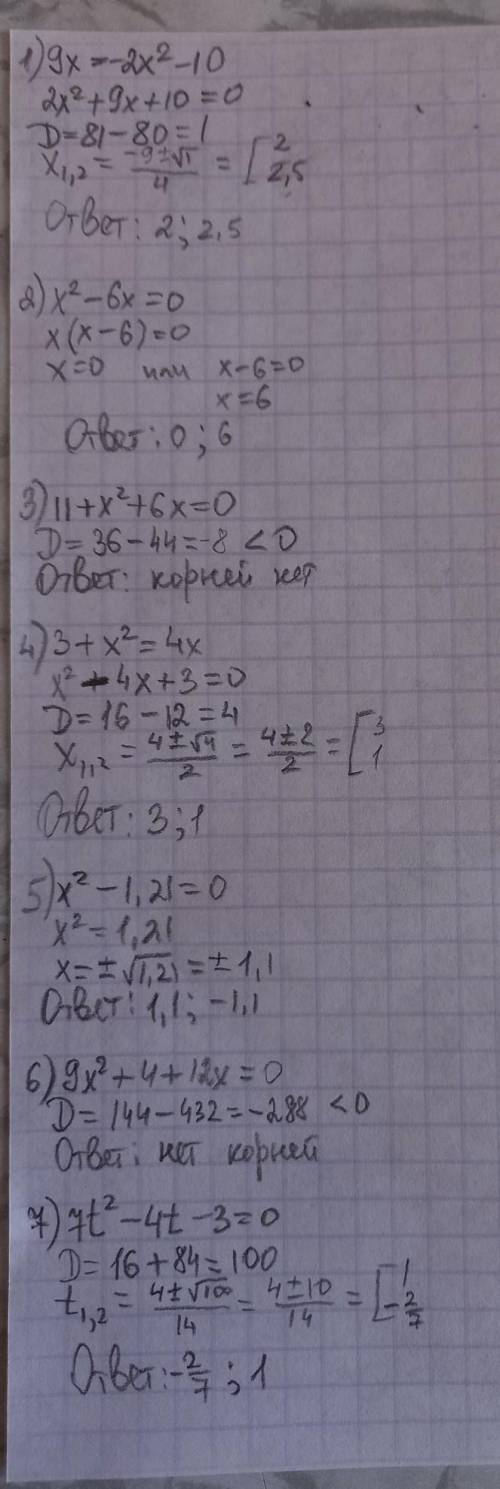 1) 9x = -2x² - 10
2x² + 9x + 10 = 0
D = 81 - 80 = 1
x₁,₂ = (-9 ± √1)/4 = [ 2 2,5
Ответ: 2; 2,5
2) x² - 6x = 0
x(x - 6) = 0
x = 0 или x - 6 = 0
x = 6
Ответ: 0; 6
3) 11 + x² + 6x = 0
D = 36 - 44 = -8 < 0
Ответ: корней нет
4) 3 + x² = 4x
x² - 4x + 3 = 0
D = 16 - 12 = 4
x₁,₂ = (4 ± √4)/2 = (4 ± 2)/2 = [ 3 1
Ответ: 3; 1
5) x² - 1,21 = 0
x² = 1,21
x = ± √1,21 = ± 1,1
Ответ: 1,1; -1,1
6) 9x² + 4 + 12x = 0
D = 144 - 432 = -288 < 0
Ответ: нет корней
7) 7t² - 4t - 3 = 0
D = 16 + 84 = 100
t₁,₂ = (4 ± √100)/14 = (4 ± 10)/14 = [ 1 -2/7
Ответ: -2/7; 1